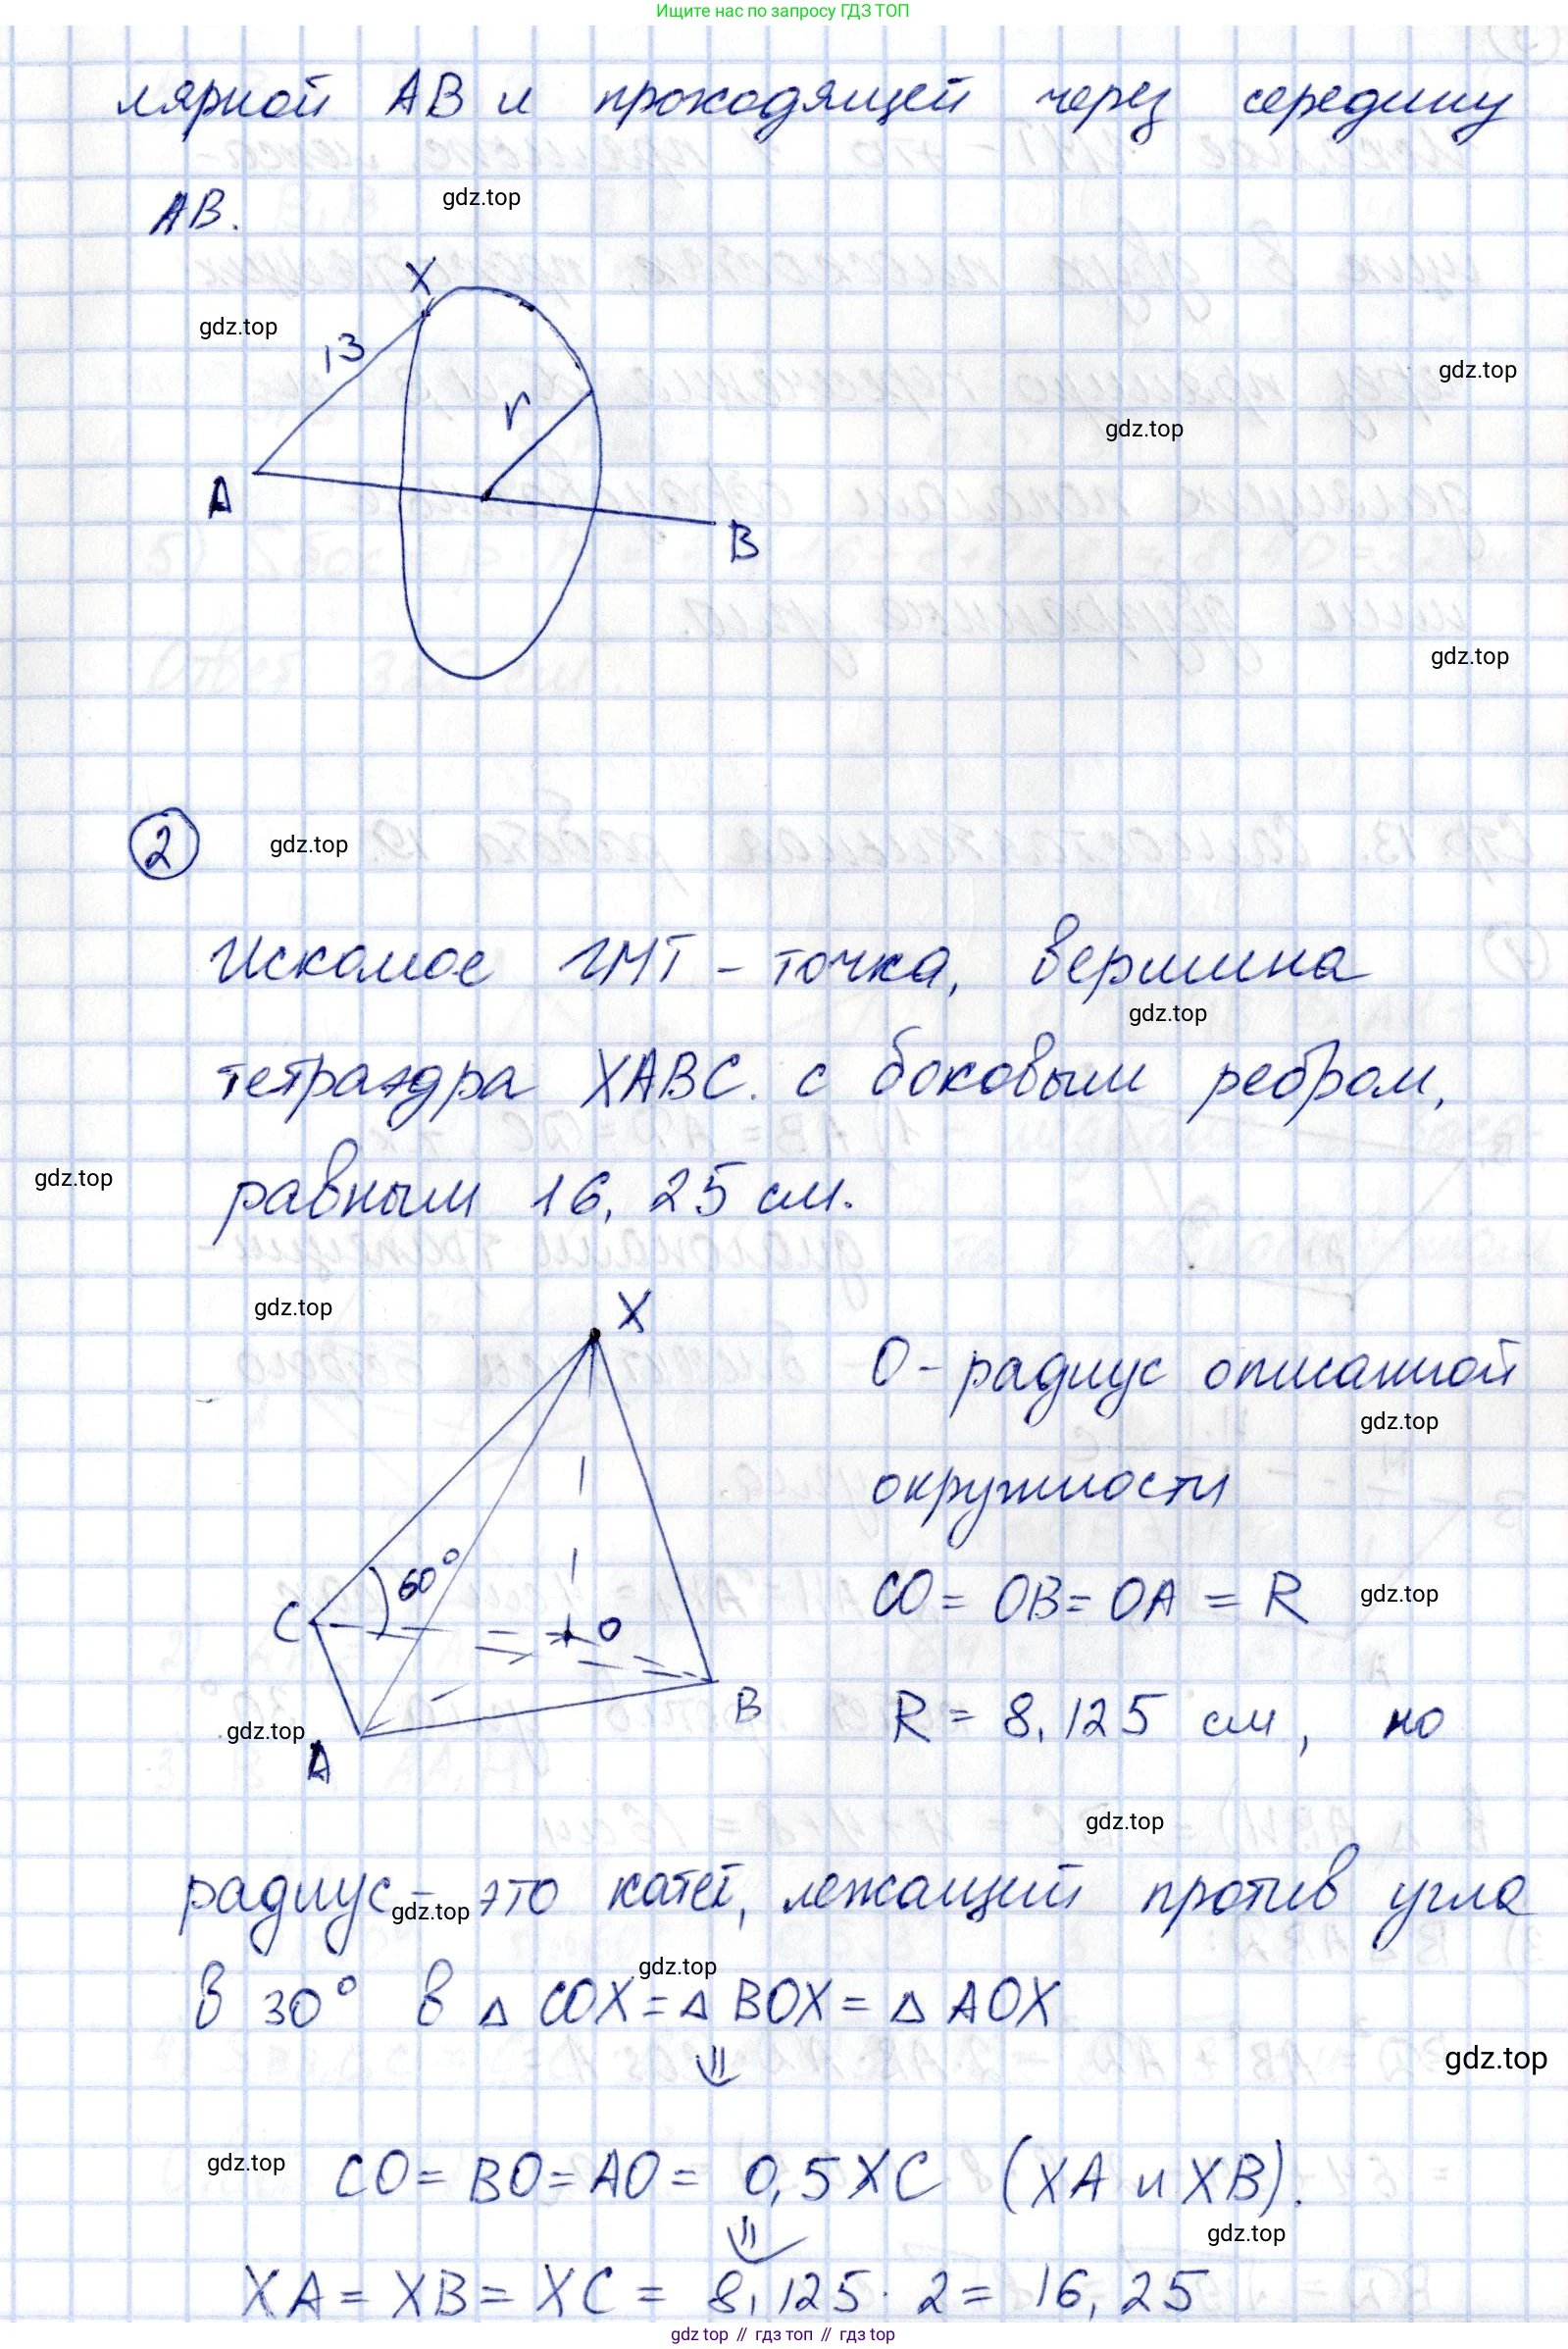 Ищите нас по запросу ГДЗ ТОП
лярной АВ и проходящей через середину
АВ.
gdz.top
X
gdz.top
13
gdz.top
r
gdz.top
A
B
gdz.top
2
gdz.top
Искомое ГМТ - точка, вершина
gdz.top
тетраэдра XABC. с боковым ребром,
gdz.top
равным 16,25 см.
gdz.top
X
О - радиус описанной
gdz.top
окружности
60°
C
O
CO = OB = OA = R
gdz.top
B
R = 8,125 см, но
gdz.top
A
gdz.top
радиус - это катет, лежащий против угла
gdz.top
gdz.top
в 30° в △ COX = △ BOX = △ AOX
gdz.top
⇓
gdz.top
CO = BO = AO = 0,5 XC (XA и XB).
gdz.top
⇓
XA = XB = XC = 8,125 · 2 = 16,25
gdz top // гдз топ // гдз top